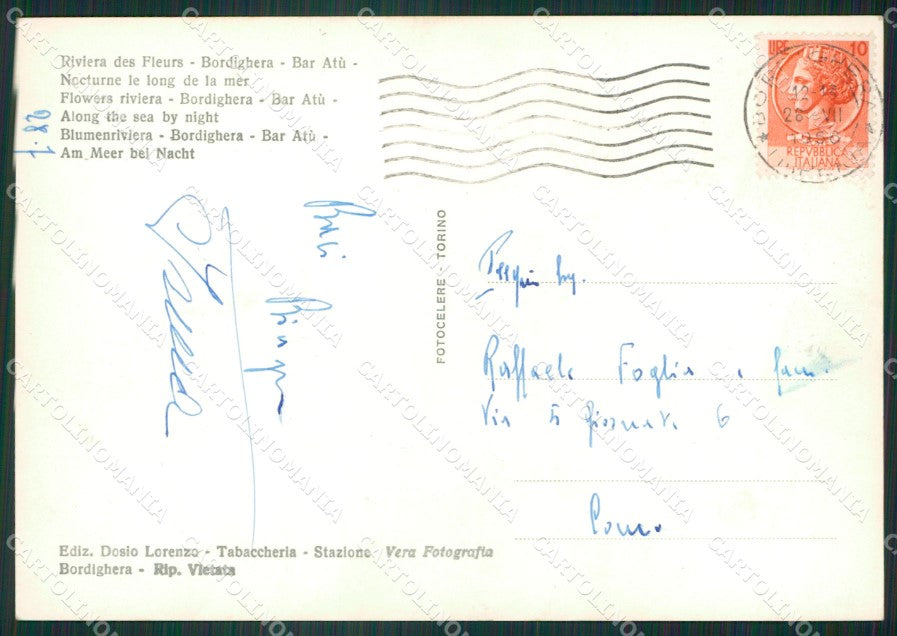 Riviera des Fleurs - Bordighera - Bar Atù -
Nocturne le long de la mer
Flowers riviera - Bordighera - Bar Atù -
Along the sea by night
Blumenriviera - Bordighera - Bar Atù -
Am Meer bei Nacht
LIRE 10
REPVBBLICA
ITALIANA
FOTOCELERE TORINO
Raffaele Foglia
Via 5 Giornate 6
Como
Ediz. Dosio Lorenzo - Tabaccheria - Stazione Vera Fotografia
Bordighera - Rip. Vietata
CARTOLINOMANIA